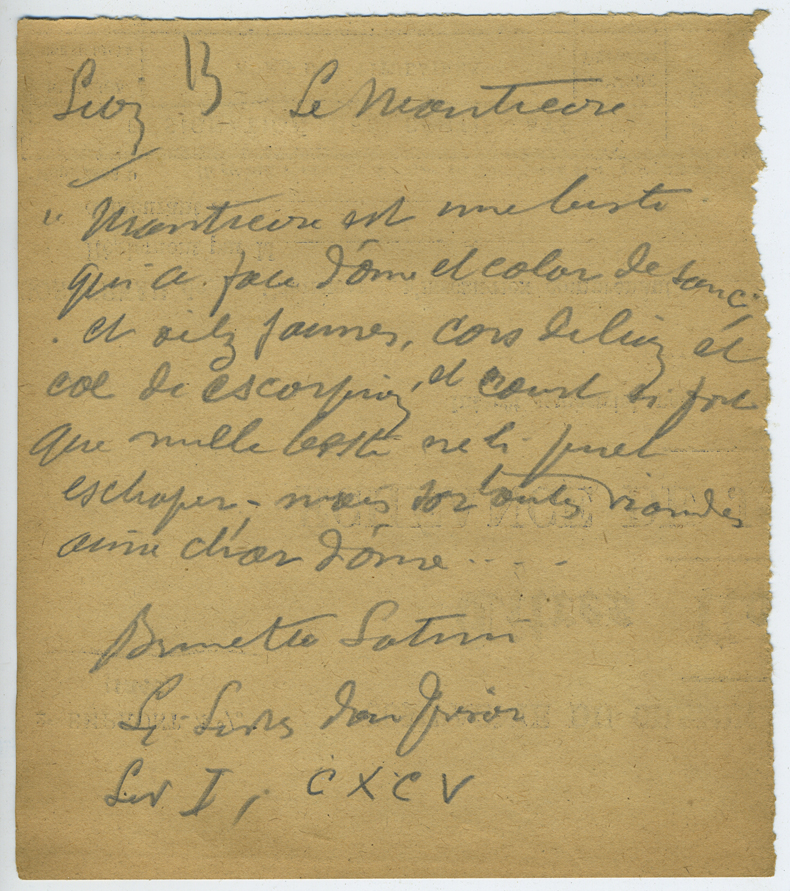 13
Le Manticore
"Manticore est une beste
qui a face d'ome et color de sanc,
et oilz jaunes, cors de lion et
coe de escorpion, et court si fort
que nulle beste ne li puet
eschaper; mais sor toutes viandes
aime char d'ome....
Brunetto Latini
Li Livres dou Tresor
Liv I, CXCV